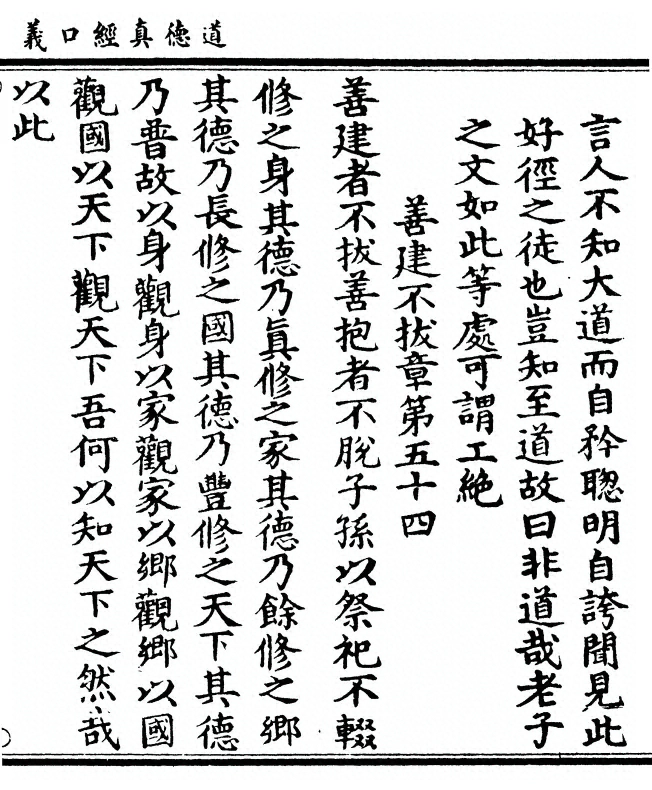 道德真經口義
言人不知大道而自矜聰明自誇聞見此
好徑之徒也豈知至道故曰非道哉老子
之文如此等處可謂工絶
善建不拔章第五十四
善建者不拔善抱者不脫子孫以祭祀不輟
修之身其德乃眞修之家其德乃餘修之鄉
其德乃長修之國其德乃豐修之天下其德
乃普故以身觀身以家觀家以鄉觀鄉以國
觀國以天下觀天下吾何以知天下之然哉
以此